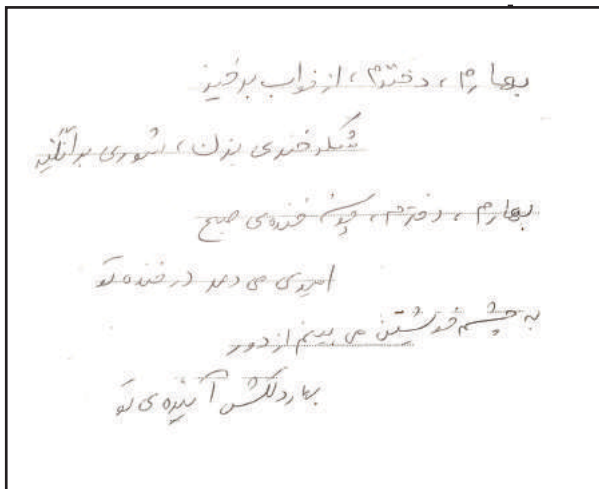 بهارم ، دخترم ، از خواب برخیز
شکر خندی بزن ، شوری برانگیز
بهارم ، دخترم ، چون خنده‌ی صبح
امیدی می دمد در خنده تو
به چشم خویشتن می بینم از دور
بهار دلکش آینده ی تو